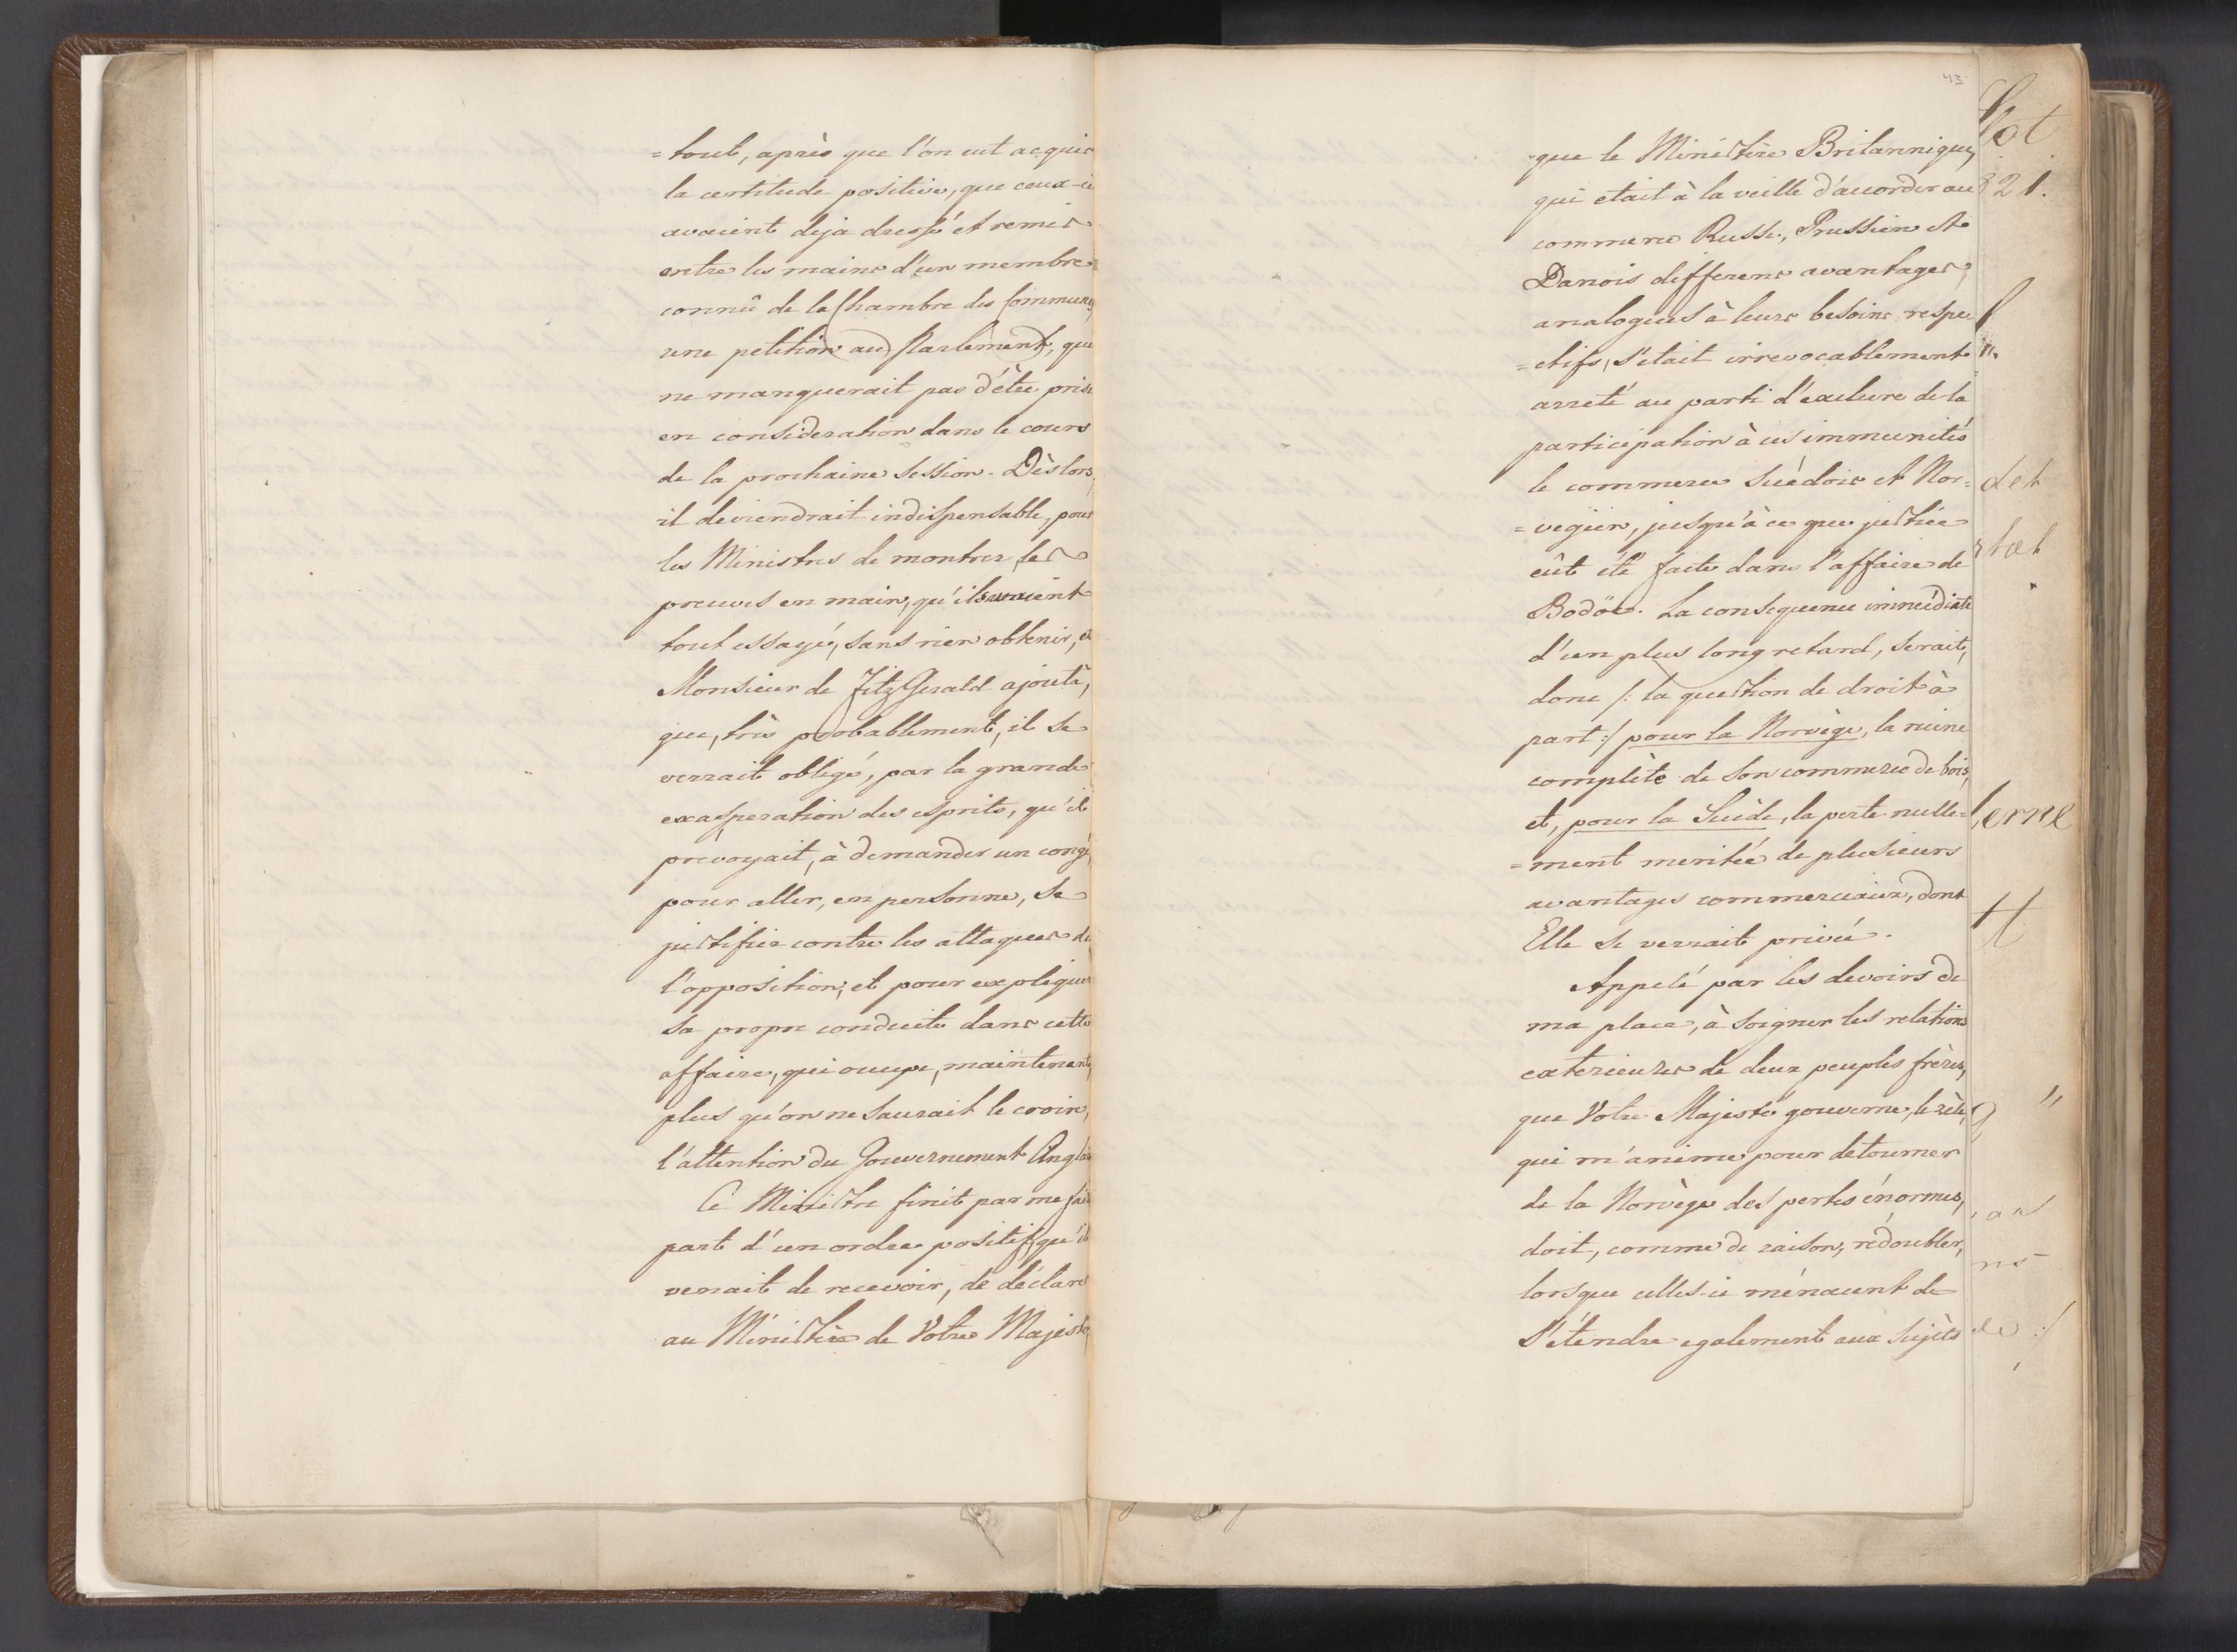 =tout, après que l'on eut acquis
la certitude positive, que ceux-ci
avaient deja dressé et remis
entre les mains d'un membre
connû de la Chambre des Communes,
une petition au Parlement, qui
ne manquerait pas d'être prise
en consideration dans le cours
de la prochaine Session. Dèslors,
il deviendrait indispensable, pour
les Ministres de montrer, les
preuves en main, qu'ils avaient
tout essayé, sans rien obtenir, et
Monsieur de FitzGerald ajoutà,
que, très probablement, il se
verrait obligé, par la grande
exasperation des esprits, qu'il
prévoyait, à demander un congé,
pour aller, en personne, se
justifier contre les attaques de
l'opposition, et pour expliquer
sa propre conduite dans cette
affaire, qui occupe, maintenant,
plus qu'on ne saurait le croire,
l'attention du Gouvernement Anglais
Ce Ministre finit par me faire
part d'un ordre positif, qu'il
venait de recevoir, de déclarer
au Ministère de Votre Majesté,
43
que le Ministère Britannique,
qui etait à la veille d'accorder au
commerce Russe, Prussien et
Danois differens avantages,
analogues à leurs besoins respe-
=ctifs, s'était irrevocablement
arreté au parti d'exclure de la
participation à ces immunités
le commerce Suédois et Nor=
=vegien, jusqu'à ce que justice
eût été faite dans l'affaire de
Bodöe. La consequence immédiate
d'un plus long retard, serait,
donc /: la question de droit à
part :/ pour la Norvège, la ruine
complète de son commerce de bois,
et, pour la Suède, la perte nulle=
=ment meritée de plusieurs
avantages commerciaux, dont
Elle se verrait privée.
Appelé par les devoirs de
ma place, à soigner les relations
exterieures de deux peuples frères,
que Votre Majesté gouverne, le zèle,
qui m'anime pour detourner
de la Norvège des pertes énormes,
doit, comme de raison, rédoubler,
lorsque celles-ci ménacent de
s'étendre egalement aux Sujèts